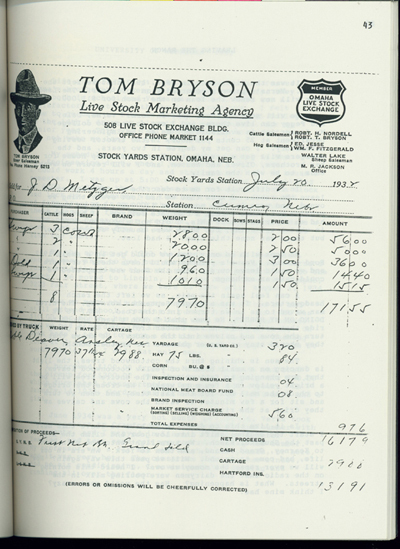 43
TOM BRYSON
Live Stock Marketing Agency
508 LIVE STOCK EXCHANGE BLDG.
OFFICE PHONE MARKET 1144
STOCK YARDS STATION, OMAHA, NEB.
MEMBER
OMAHA
LIVE STOCK
EXCHANGE
TOM BRYSON
Cattle Salesmen ROBT. H. NORDELL
ROBT. T. BRYSON
Hog Salesmen ED. JESSE
WM. F. FITZGERALD
WALTER LAKE
Sheep Salesman
M. R. JACKSON
Office
Stock Yards Station July 20 1932
J. D. Metzger
Station Nebr
CATTLE HOGS SHEEP BRAND WEIGHT DOCK SOWS STAGS PRICE AMOUNT
3 Cows 2800 2 00 56 00
2 " 2000 2 50 50 00
1 " 1200 3 00 36 00
1 " 960 1 50 14 40
1 " 1010 1 50 15 15
8 7970 171 55
BY TRUCK WEIGHT RATE CARTAGE
7970 37½ 29 88
YARDAGE (U. S. YARD CO.) 3 20
HAY 75 LBS. " 84
CORN BU. @ $ "
INSPECTION AND INSURANCE 04
NATIONAL MEAT BOARD FUND 08
BRAND INSPECTION
MARKET SERVICE CHARGE 5 60
(SORTING) (SELLING) (WEIGHING) (ACCOUNTING)
TOTAL EXPENSES 9 76
OF PROCEEDS—
NET PROCEEDS 161 79
CASH
CARTAGE
HARTFORD INS.
131 91
(ERRORS OR OMISSIONS WILL BE CHEERFULLY CORRECTED)